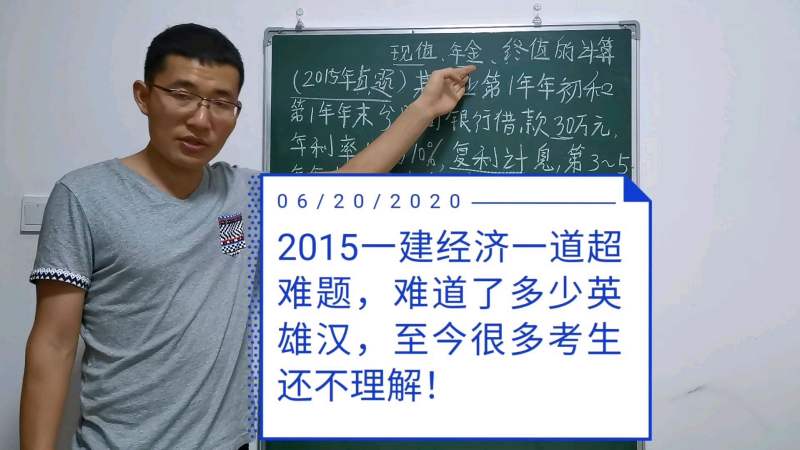 现值、年金、终值的计算
(2015年真题)某 业第1年年初和
第1年年末分 银行借款30万元,
年利率 10%,复利计息,第3~5
06/20/2020
2015一建经济一道超
难题，难道了多少英
雄汉，至今很多考生
还不理解！